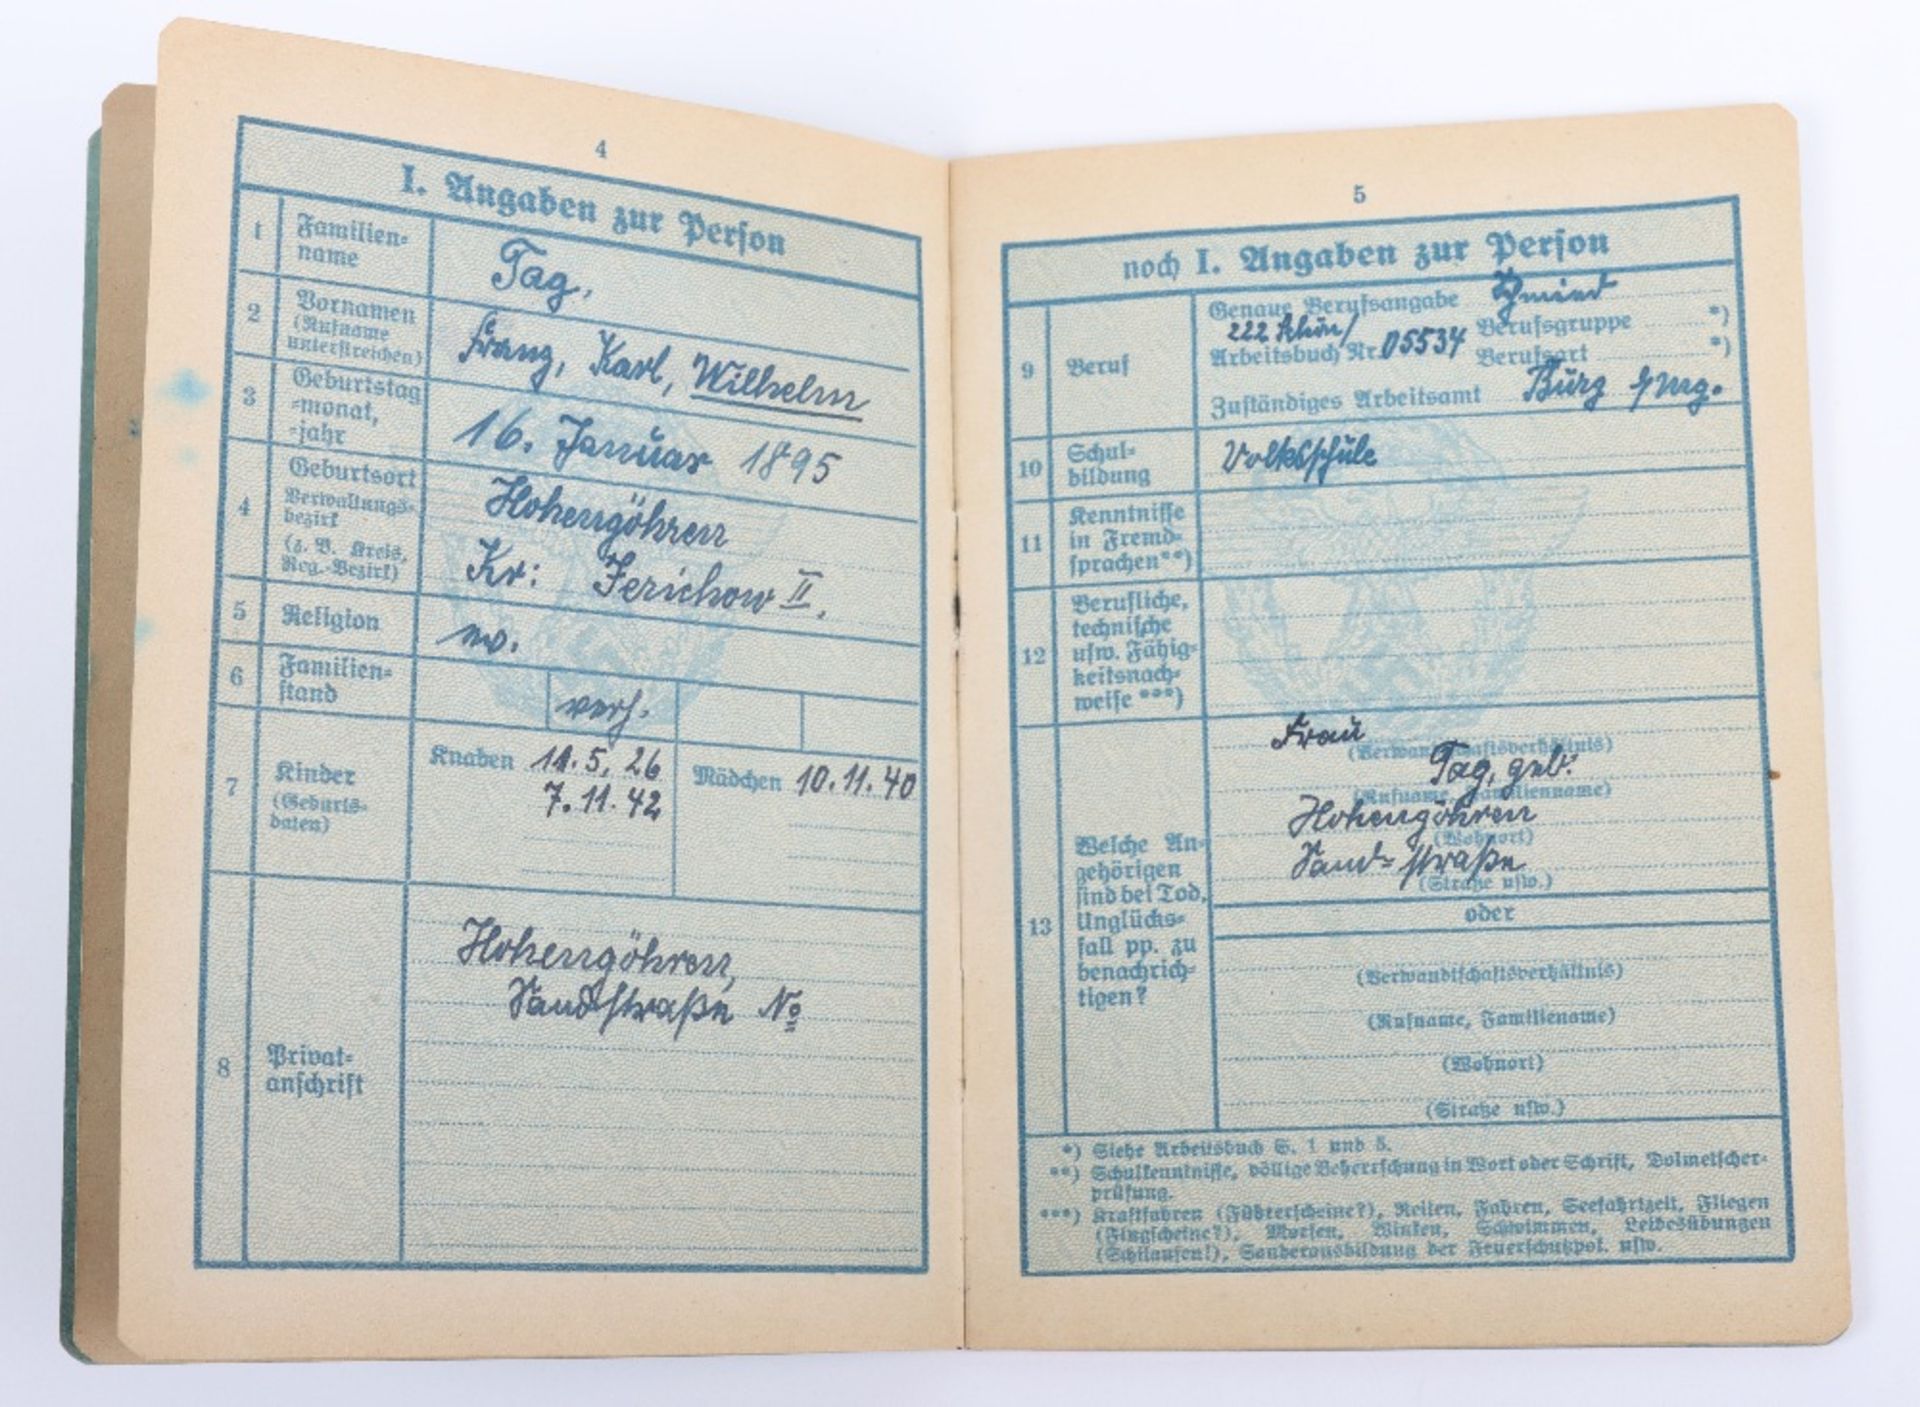 4
I. Angaben zur Person
1 Familien-
name
Tag,
2 Vornamen
(Rufname
unterstreichen)
Franz, Karl, Wilhelm
3 Geburtstag
-monat,
-jahr
16. Januar 1895
4 Geburtsort
Verwaltungs-
bezirk
(z. B. Kreis,
Reg.-Bezirk)
Hohengöhren
Kr: Jerichow II.
5 Religion
ev.
6 Familien-
stand
verh.
7 Kinder
(Geburts-
daten)
Knaben 11.5.26
7.11.42
Mädchen 10.11.40
8 Privat-
anschrift
Hohengöhren,
Sandstraße No
5
noch I. Angaben zur Person
9 Beruf
Genaue Berufsangabe Schmied
222
Arbeitsbuch Nr. 05534
Berufsgruppe *)
Berufsart *)
Zuständiges Arbeitsamt Burg b/Mg.
10 Schul-
bildung
Volksschule
11 Kenntnisse
in Fremd-
sprachen **)
12 Berufliche,
technische
usw. Fähig-
keitsnach-
weise ***)
13 Welche An-
gehörigen
sind bei Tod,
Unglücks-
fall pp. zu
benachrich-
tigen?
Frau
(Verwandtschaftsverhältnis)
Tag, geb.
(Rufname, Familienname)
Hohengöhren
(Wohnort)
Sand-straße
(Straße usw.)
oder
(Verwandtschaftsverhältnis)
(Rufname, Familienname)
(Wohnort)
(Straße usw.)
*) Siehe Arbeitsbuch S. 1 und 5.
**) Schulkenntnisse, völlige Beherrschung in Wort oder Schrift, Dolmetscher-
prüfung.
***) Kraftfahren (Führerscheine?), Reiten, Fahren, Seefahrtzeit, Fliegen
(Flugscheine?), Morsen, Winken, Schwimmen, Leibesübungen
(Schilaufen!), Sonderausbildung der Feuerschutzpol. usw.